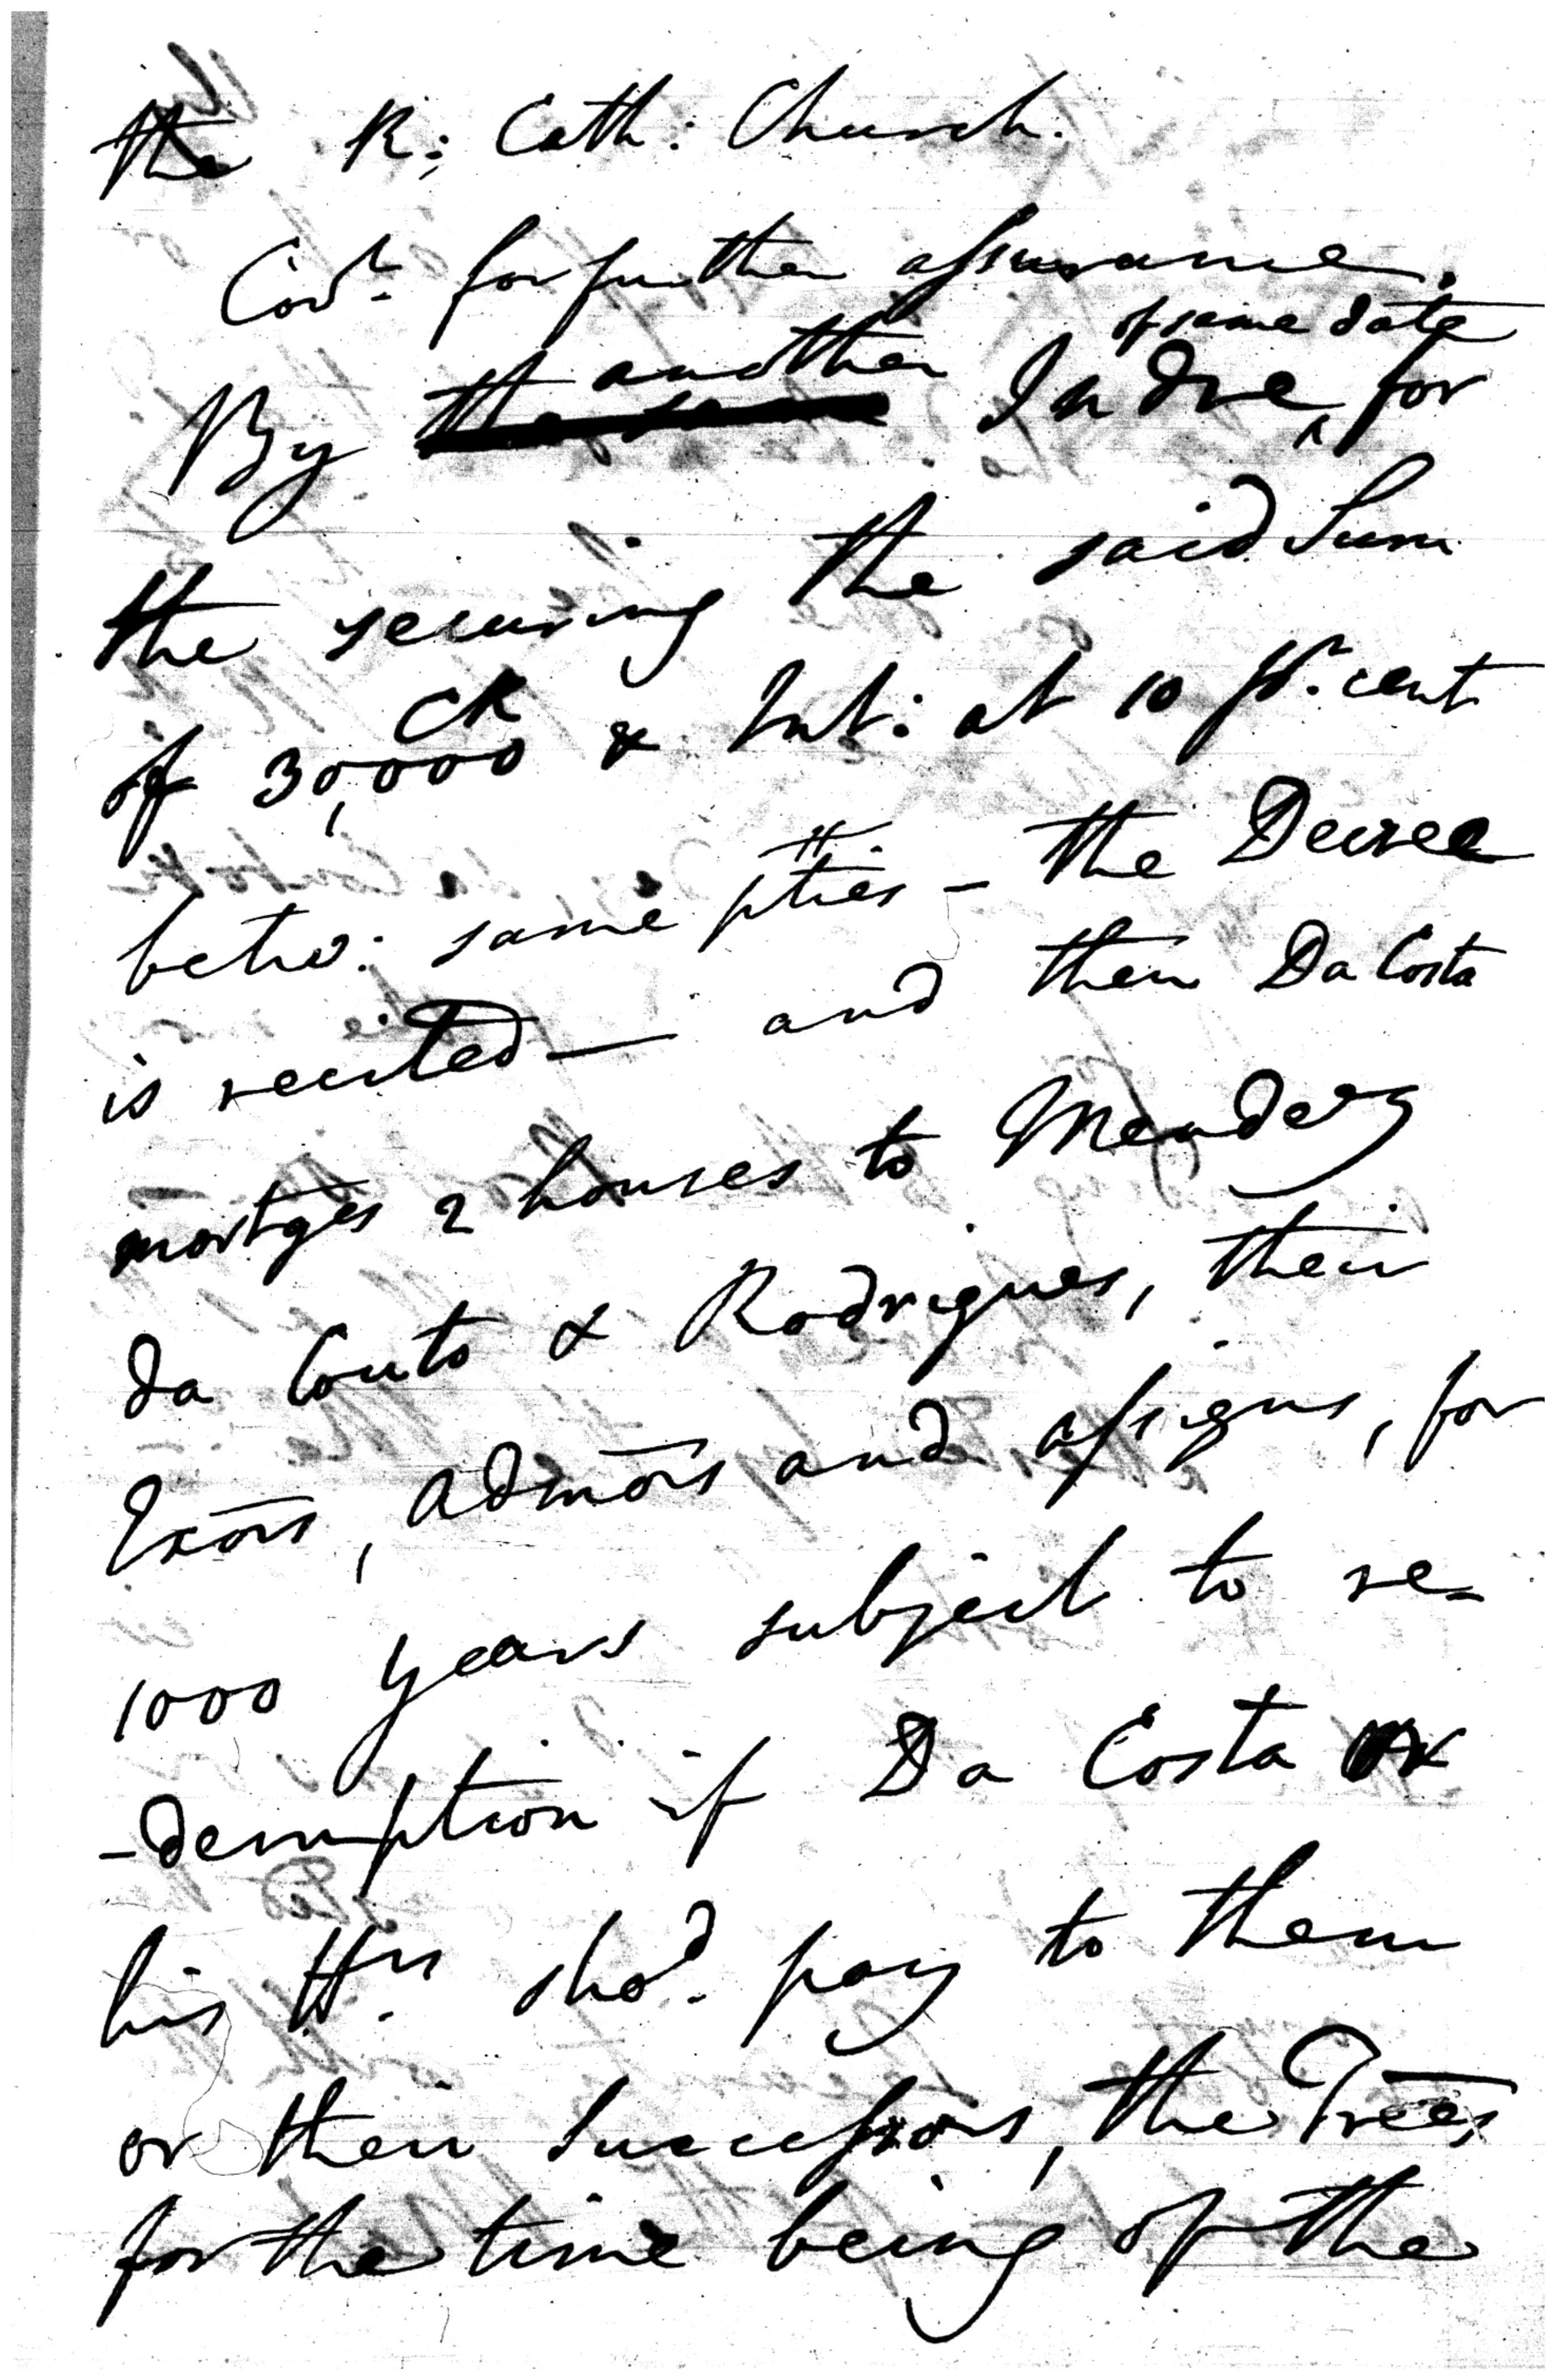 the R: Cath: Church.
Covt. for further assurance.
of same date
By the same another Indre, for
the securing the said Sum
CR
of 30,000 & Int: at 10 pr. cent
betw: same pties – the Decree
is recited — and then Da Costa
mortges 2 houses to Mendes
da Couto & Rodrigues, their
Exors, Admors and assigns, for
1000 years subject to re-
-demption if Da Costa or
his Hrs. shod. pay to them
or their Successors, the Trees
for the time being of the